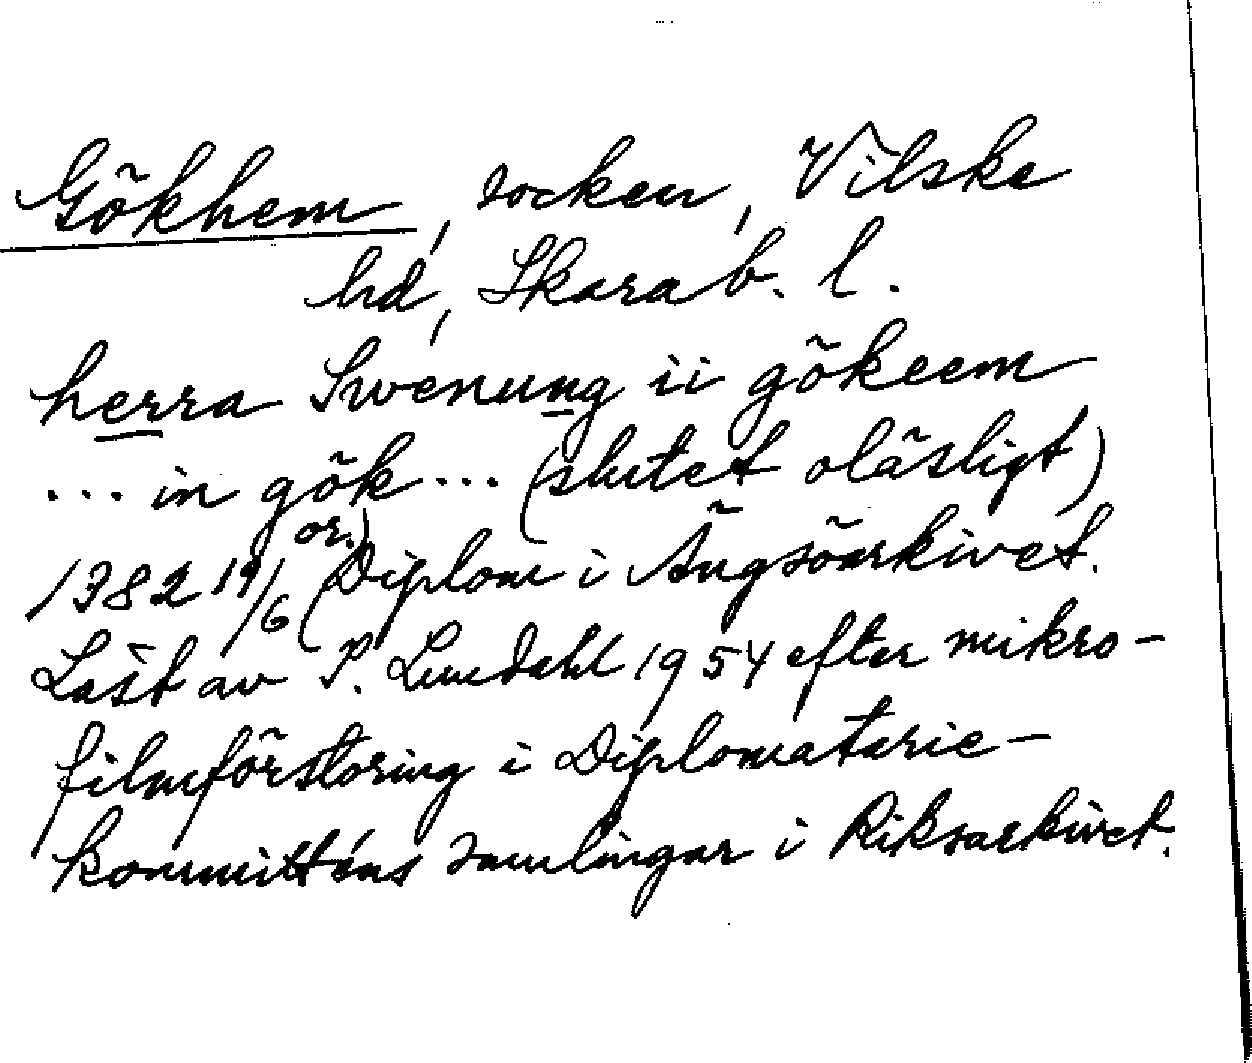 Gökhem, socken, Vilske
hd, Skarab. l.
herra Swenung ii gökeem
... in gök... (slutet oläsligt)
or.)
1382 19/6 (Diplom i Ängsöarkivet.
Läst av P. Lindahl 1954 efter mikro-
filmförstoring i Diplomatarie-
kommitténs samlingar i Riksarkivet.